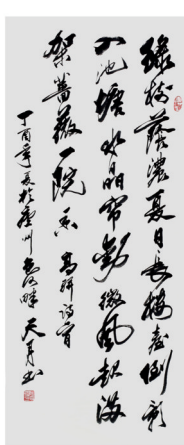 綠樹蔭濃夏日長樓臺倒影
入池塘水晶帘動微風起滿
架薔薇一院香 高駢詩
丁酉年夏於廬州包河畔 天